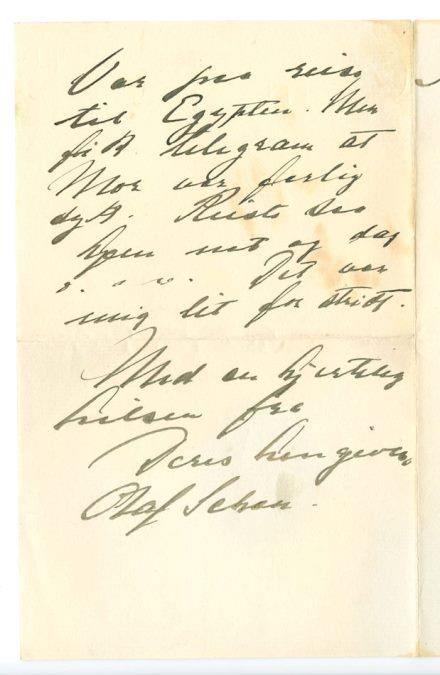 Var paa reise
til Egypten. Men
fik telegram at
Mor var farlig
syk. Reiste saa
hjem nat og dag
s. s. v. Det var
mig lit for stridt.
Med en hjertelig
hilsen fra
Deres hengivne
Olaf Schou.